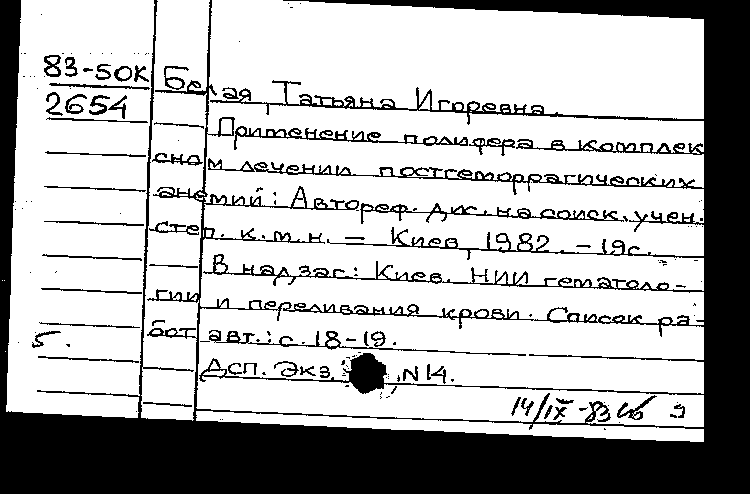 83-50К Белая, Татьяна Игоревна.
2654
Применение полифера в комплек
сном лечении постгеморрагических
анемий: Автореф. дис. на соиск. учен.
степ. к.м.н. – Киев, 1982. – 19с.
В надзаг: Киев. НИИ гематоло-
гии и переливания крови. Список ра-
бот авт.: с. 18-19.
5.
Дсп. Экз. , N14.
14/IX-83